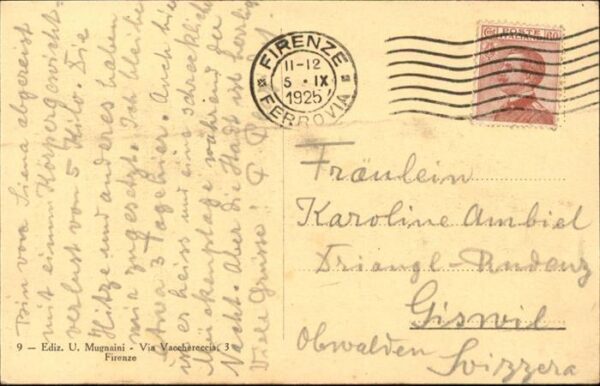 Bin von Siena abgereist
mit einem Körpergewicht-
verlust von 5 Kilo. Die
Hitze und anderes haben
mir zugesetzt. Ich bleibe
etwa 3 Tage hier. Auch hier
ist er heiss und eine schreckliche
Mückenplage während der
Nacht. Aber die Stadt ist herrlich
Viele Grüsse!
FIRENZE
11-12
5 · IX
1925
FERROVIA
POSTE
ITALIANE
Fräulein
Karoline Ambiel
Triangl-Rudenz
Giswil
Obwalden
Svizzera
9 — Ediz. U. Mugnaini - Via Vacchereccia, 3
Firenze